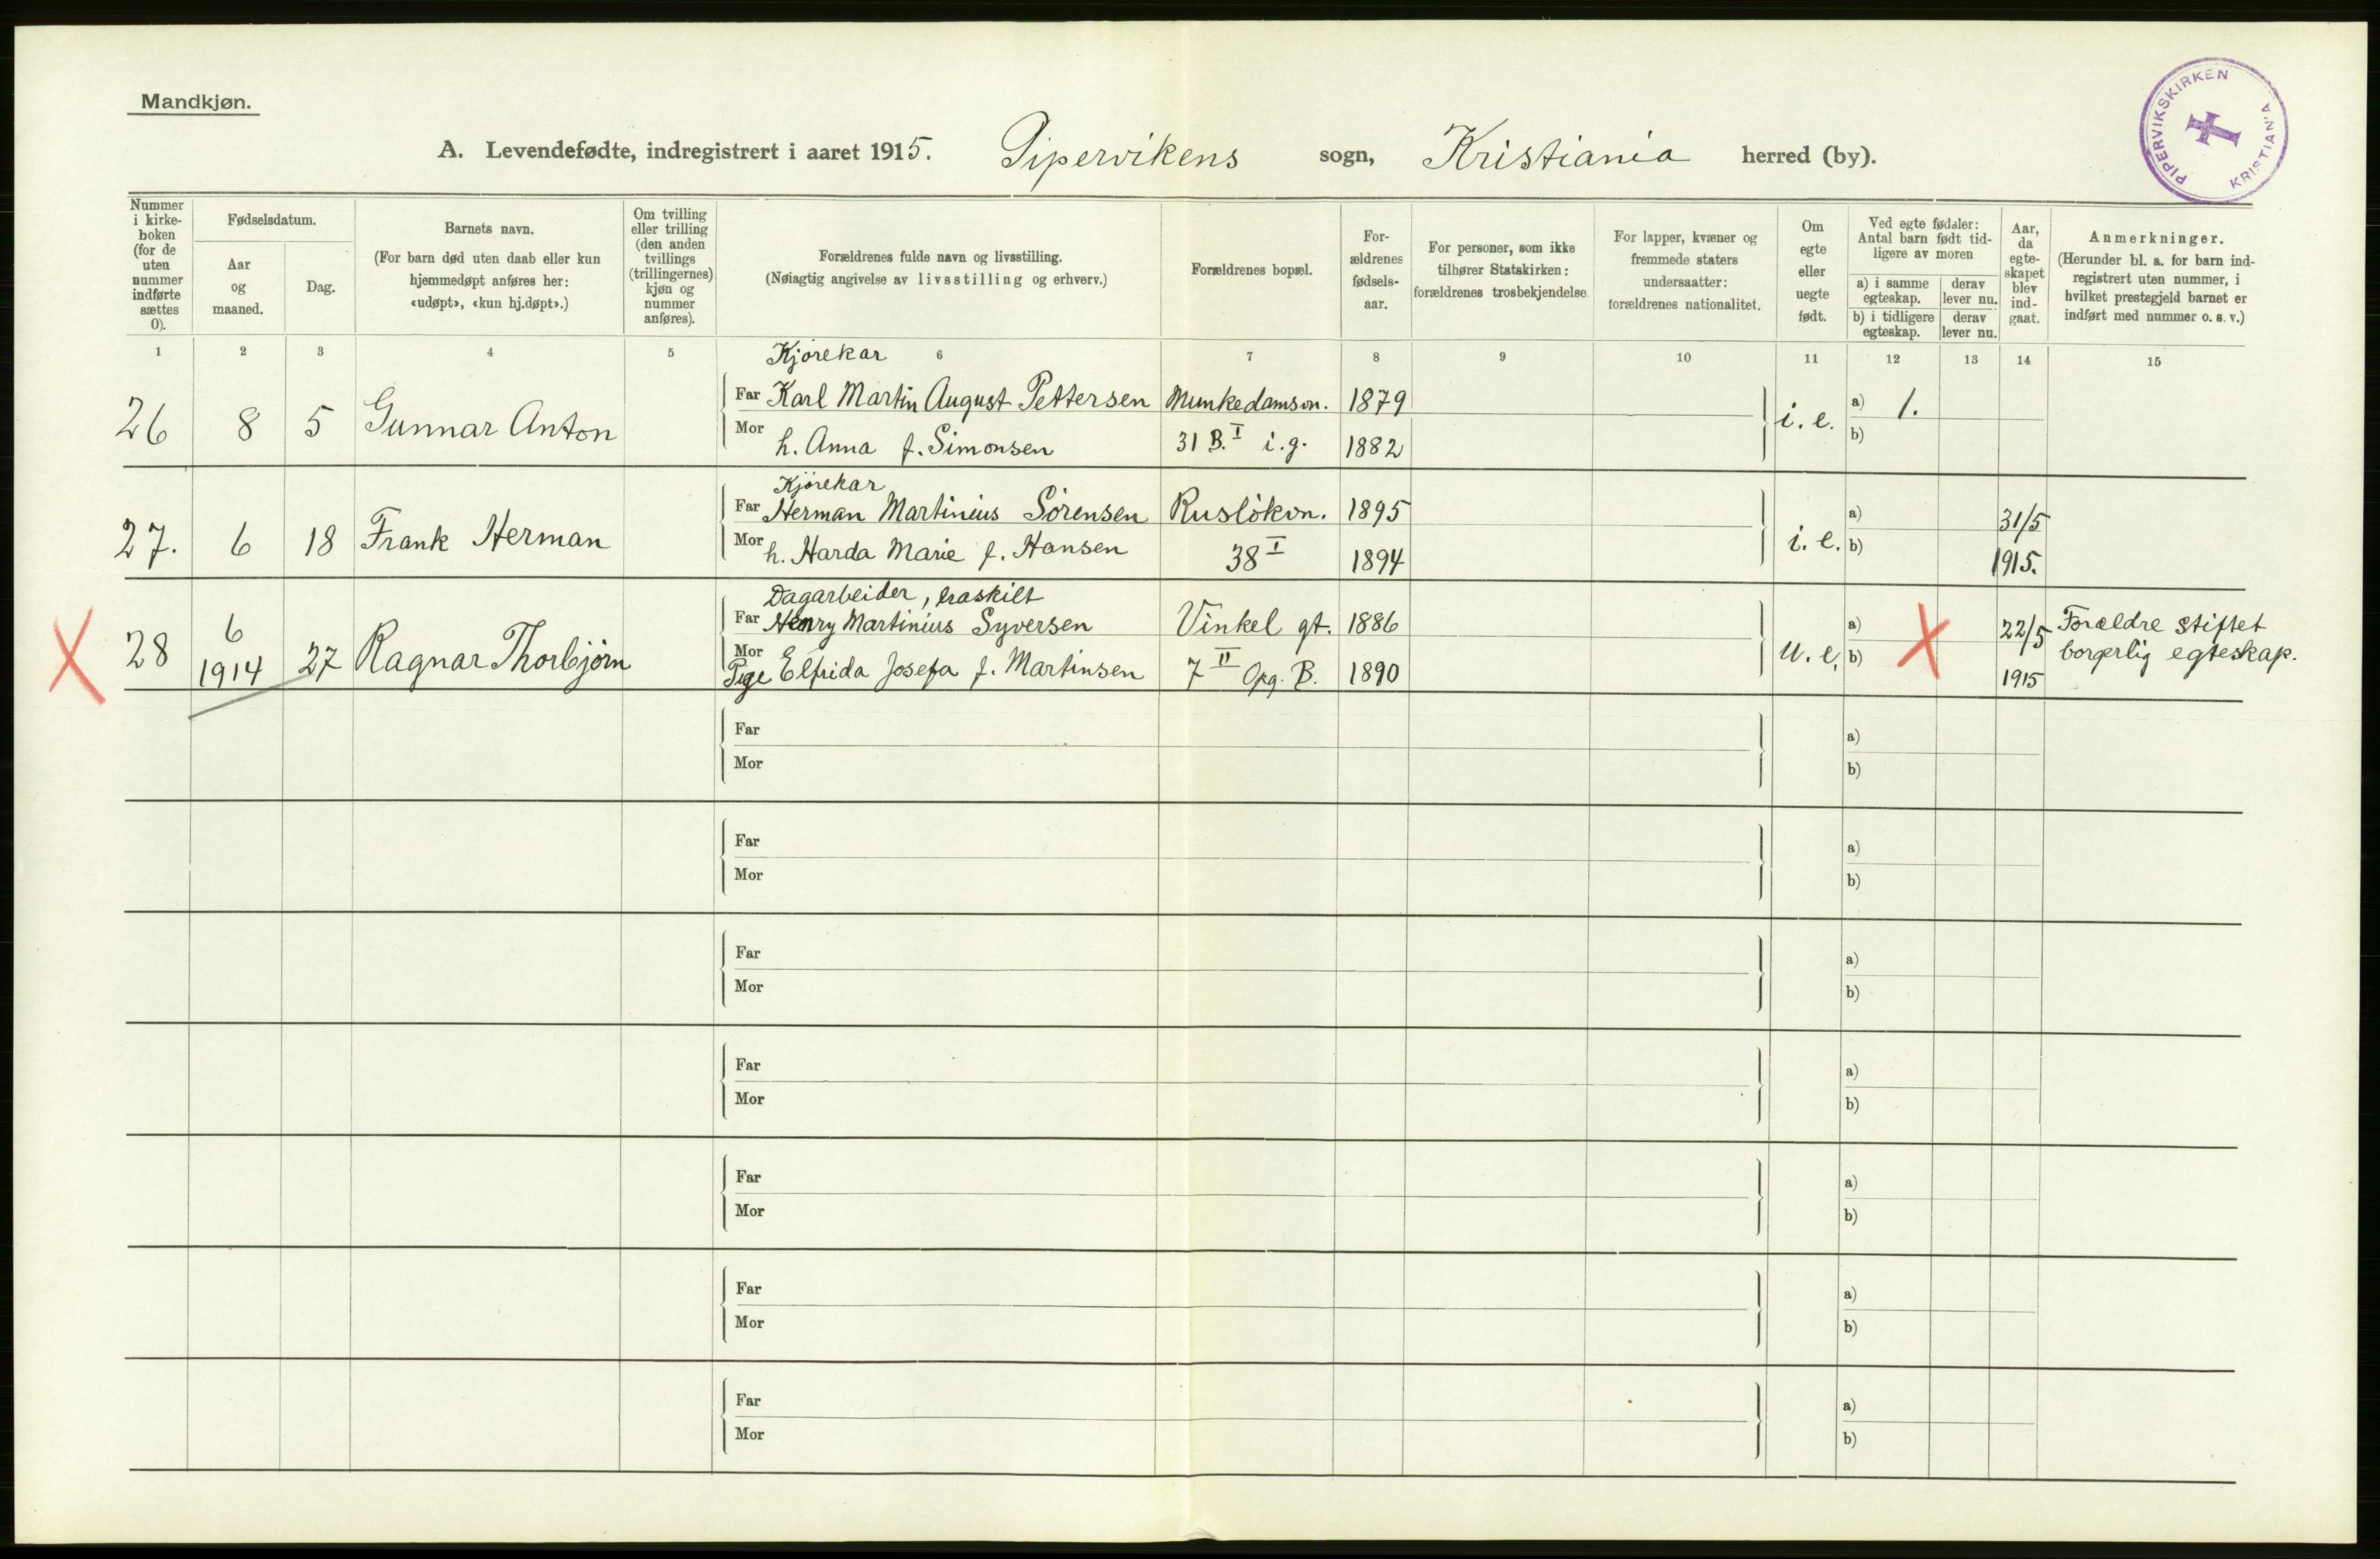 Mandkjøn.
PIPERVIKSKIRKEN
KRISTIANIA
A. Levendefødte, indregistrert i aaret 1915. Pipervikens sogn, Kristiania herred (by).
Nummer i kirke-boken (for de uten nummer indførte sættes 0).
Fødselsdatum.
Aar og maaned.
Dag.
Barnets navn.
(For barn død uten daab eller kun hjemmedøpt anføres her: «udøpt», «kun hj.døpt».)
Om tvilling eller trilling (den anden tvillings (trillingernes) kjøn og nummer anføres).
Forældrenes fulde navn og livsstilling.
(Nøiagtig angivelse av livsstilling og erhverv.)
Forældrenes bopæl.
For-ældrenes fødsels-aar.
For personer, som ikke tilhører Statskirken: forældrenes trosbekjendelse
For lapper, kvæner og fremmede staters undersaatter: forældrenes nationalitet.
Om egte eller uegte født.
Ved egte fødsler: Antal barn født tid-ligere av moren
a) i samme egteskap.
derav lever nu.
b) i tidligere egteskap.
derav lever nu.
Aar, da egte-skapet blev ind-gaat.
Anmerkninger.
(Herunder bl. a. for barn ind-registrert uten nummer, i hvilket prestegjeld barnet er indført med nummer o. s. v.)
1 2 3 4 5 6 7 8 9 10 11 12 13 14 15
Kjørekar
Far Karl Martin August Pettersen Munkedamsvn. 1879
26 8 5 Gunnar Anton i. e. a) 1.
Mor h. Anna f. Simonsen 31 B. I i.g. 1882 b)
Kjørekar
Far Herman Martinius Sörensen Ruslökvn. 1895 a) 31/5
27. 6 18 Frank Herman i. e.
Mor h. Harda Marie f. Hansen 38 I 1894 b) 1915.
Dagarbeider, fraskilt
Far Henry Martinius Syversen Vinkel gt. 1886 a) 22/5 Forældre stiftet
28 6 1914 27 Ragnar Thorbjørn u. e. b) borgerlig egteskap.
Mor Pige Elfrida Josefa f. Martinsen 7 II Opg. B. 1890 1915
Far a)
Mor b)
Far a)
Mor b)
Far a)
Mor b)
Far a)
Mor b)
Far a)
Mor b)
Far a)
Mor b)
Far a)
Mor b)